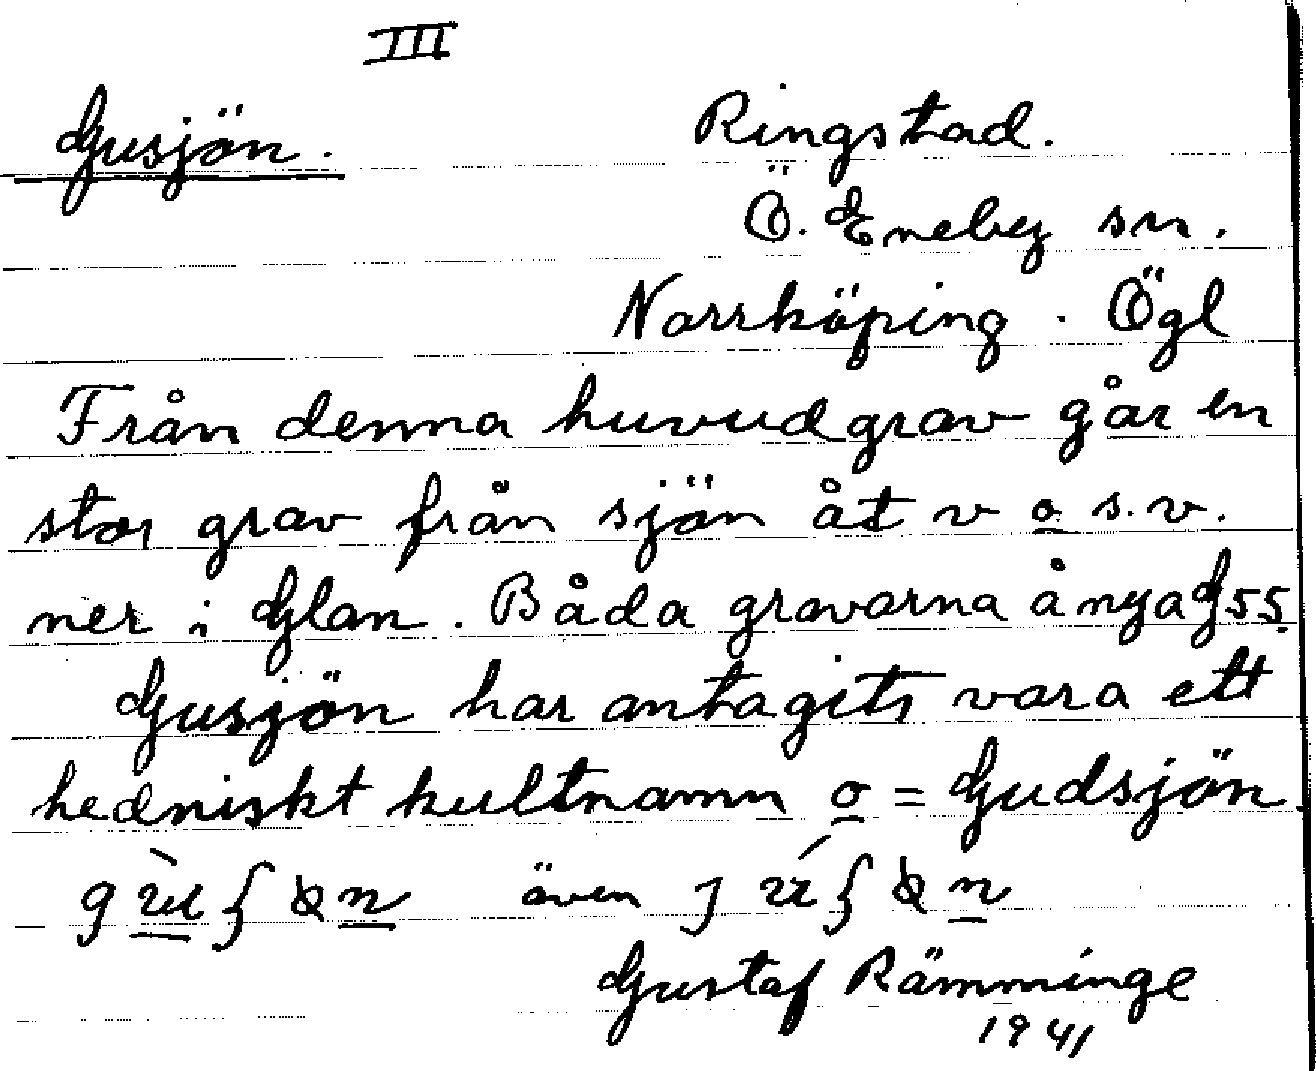 III
Gusjön.
Ringstad.
Ö. Eneby sn.
Norrköping. Ögl
Från denna huvudgrav går en
stor grav från sjön åt v o s.v.
ner i Glan. Båda gravarna å nya G55.
Gusjön har antagits vara ett
hedniskt kultnamn o = Gudsjön
även
Gustaf Rämminge
1941